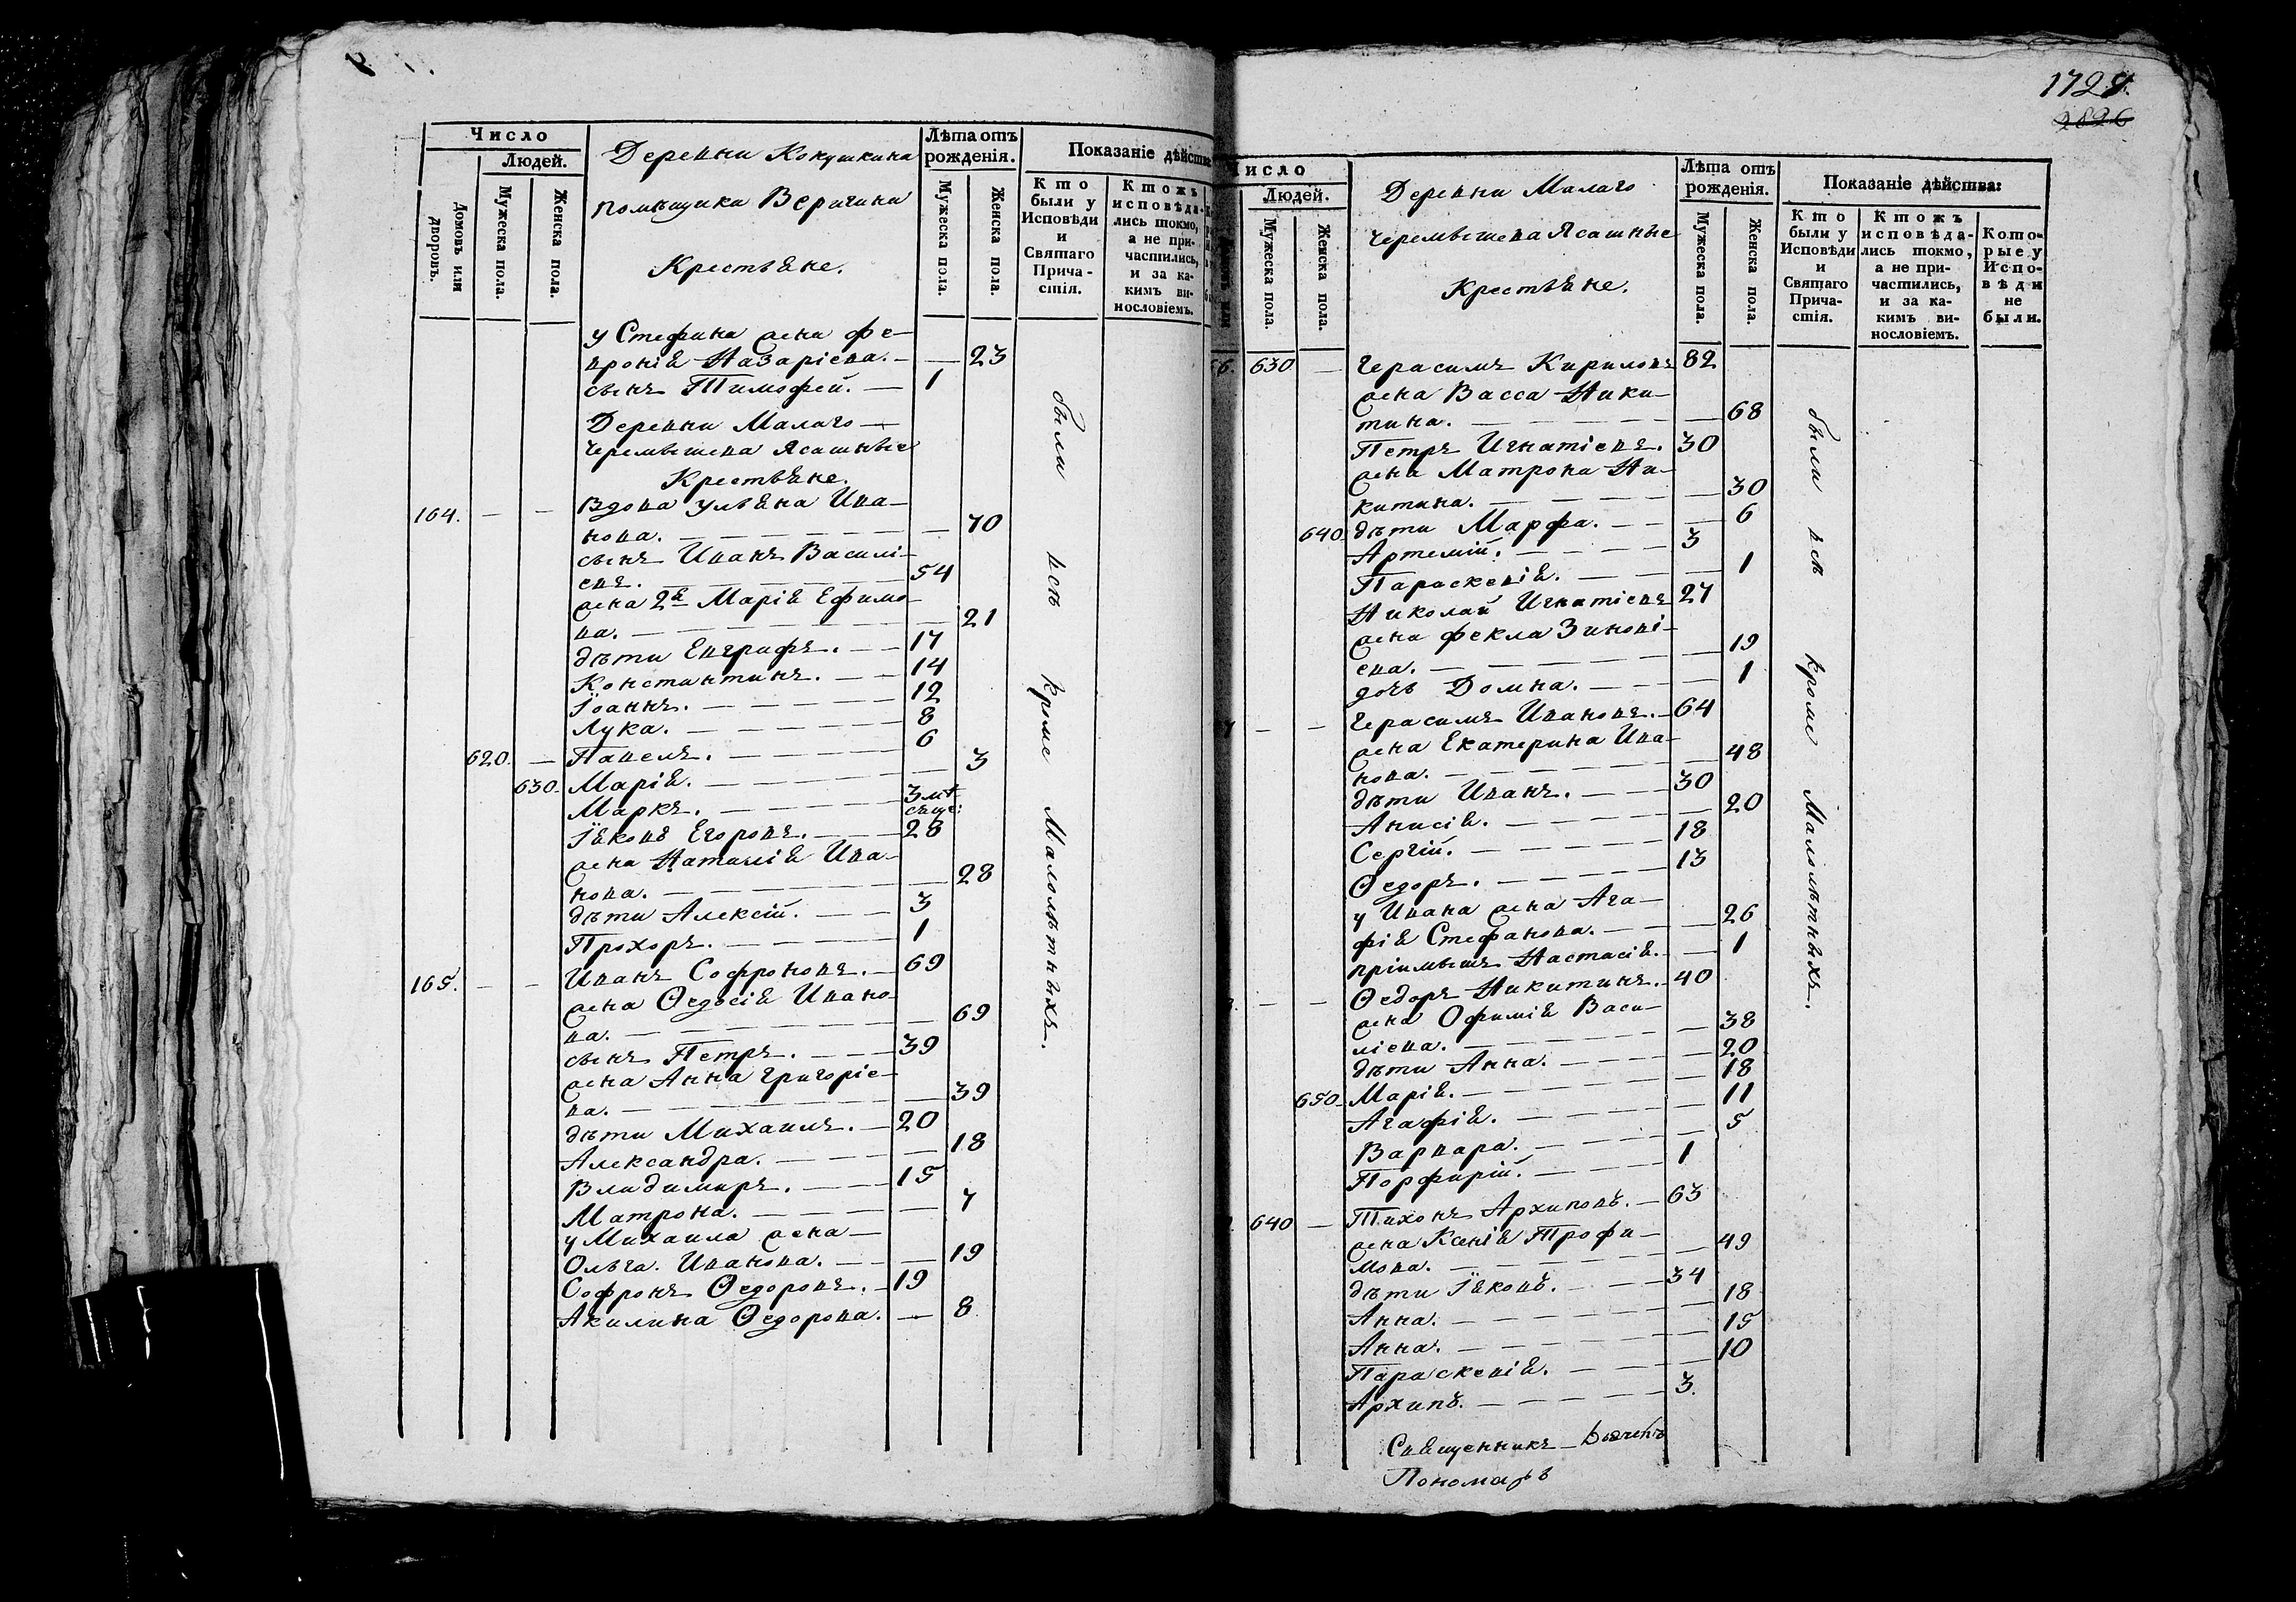 Число
Людей.
Домовъ или дворовъ.
Мужеска пола.
Женска пола.
Деревни Кокушкина
помѣщика Веригина
Крестьяне.
Лѣта отъ
рожденія.
Мужеска пола.
Женска пола.
Показаніе дѣйства
Кто
были у
Исповѣди
и
Святаго
Прича-
стія.
Ктожъ
исповѣда-
лись токмо,
а не при-
частились,
и за ка-
кимъ ви-
нословіемъ.
у Стефана жена Фе-
вронія Назаріева. — — 23
сынъ Тимофей. — 1
Деревни Малаго —
Черемышева Ясашные
Крестьяне.
164. — — Вдова Ульяна Ива-
нова. — — 70
сынъ Иванъ Василі-
евъ. — 54
жена 2я Марія Ефимо-
ва. — — 21
дѣти Евграфъ. — 17
Константинъ. — 14
Іоаннъ. — 12
Лука. — 8
620. — Павелъ. — 6
630. Марія. — — 3
Маркъ. — 3 мѣ-
сяце:
Іяковъ Егоровъ. — 28
жена Наталія Ива-
нова. — — 28
дѣти Алексій. — 3
Прохоръ. — 1
165. — — Иванъ Софроновъ. — 69
жена Ѳедосія Ивано-
ва. — — 69
сынъ Петръ. — 39
жена Анна Григоріе-
ва. — — 39
дѣти Михаилъ. — 20
Александра. — — 18
Владимиръ. — 15
Матрона. — — 7
у Михаила жена —
Ольга Иванова. — — 19
Софронъ Ѳедоровъ. — 19
Акилина Ѳедорова. — 8
были всѣ кроме Малолѣтныхъ.
1728.
2826
Число
Людей.
Мужеска пола.
Женска пола.
Деревни Малаго
Черемышева Ясашные
Крестьяне.
Лѣта отъ
рожденія.
Мужеска пола.
Женска пола.
Показаніе дѣйства:
Кто
были у
Исповѣди
и
Святаго
Прича-
стія.
Ктожъ
исповѣда-
лись токмо,
а не при-
частились,
и за ка-
кимъ ви-
нословіемъ.
Кото-
рые у
Испо-
вѣди
не
были.
6. 630 — Герасимъ Кириловъ 82
жена Васса Ники-
тина. — — 68
Петръ Игнатіевъ. 30
жена Матрона Ни-
китина. — — 30
640. дѣти Марфа. — — 6
Артемій. — 3
Параскевія. — — 1
Николай Игнатіевъ 27
жена Фекла Зинові-
ева. — — 19
дочь Домна. — — 1
7 — — Герасимъ Ивановъ. — 64
жена Екатерина Ива-
нова. — — 48
дѣти Иванъ. — 30
Анисія. — — 20
Сергій. — 18
Ѳедоръ. — 13
у Ивана жена Ага-
фія Стефанова. — — 26
пріимышъ Настасія. — 1
— — Ѳедоръ Никитинъ. — 40
жена Офимія Васи-
ліева. — — 38
дѣти Анна. — — 20
650. Марія. — — 18
Агафія. — — 11
Варвара. — — 5
Порфирій. — 1
640 — Тихонъ Архиповъ. — 63
жена Ксенія Трофи-
мова. — — 49
дѣти Іяковъ. — 34
Анна. — — 18
Анна. — — 15
Параскевія. — — 10
Архипъ. — 3.
были всѣ кроме Малолѣтныхъ.
Священникъ
Пономарь